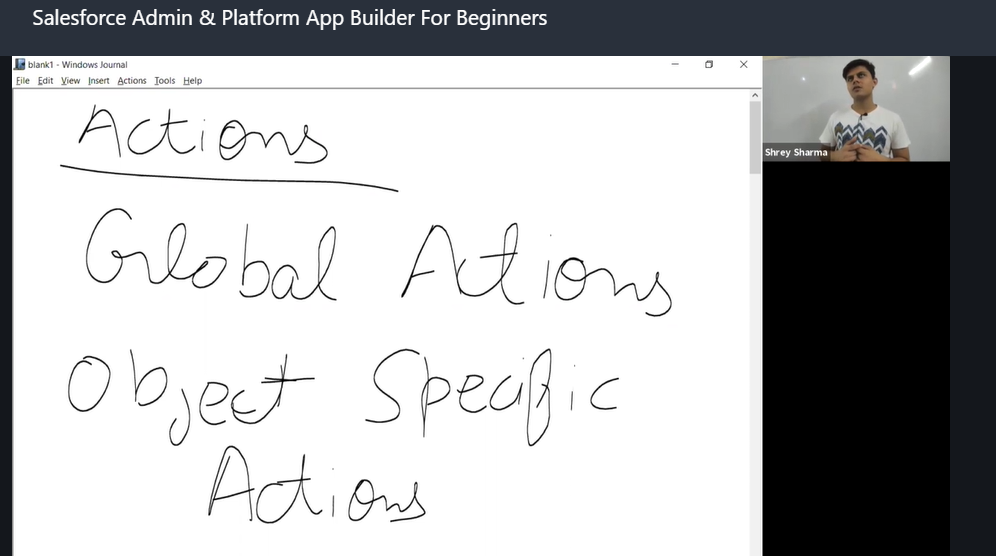 Salesforce Admin & Platform App Builder For Beginners
blank1 - Windows Journal
File Edit View Insert Actions Tools Help
Actions
Shrey Sharma
Global Actions
Object Specific
Actions